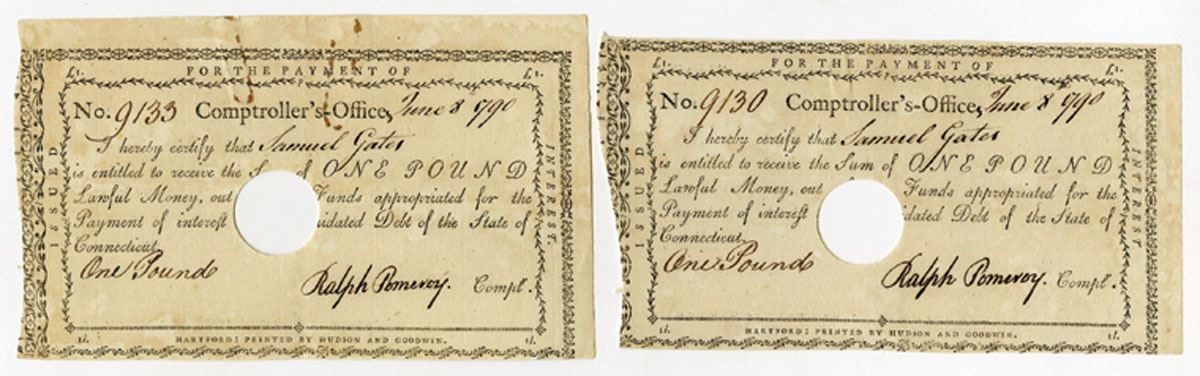 £1. FOR THE PAYMENT OF £1.
No. 9133 Comptroller's-Office, June 8 1790
I hereby certify that Samuel Gates
is entitled to receive the of ONE POUND
Lawful Money, out Funds appropriated for the
Payment of interest idated Debt of the State of
Connecticut.
One Pound
Ralph Pomeroy. Compt.
1l. HARTFORD: PRINTED BY HUDSON AND GOODWIN. 1l.
ISSUED
INTEREST.
£1. FOR THE PAYMENT OF £1.
No. 9130 Comptroller's-Office, June 8 1790
I hereby certify that Samuel Gates
is entitled to receive the Sum of ONE POUND
Lawful Money, out Funds appropriated for the
Payment of interest idated Debt of the State of
Connecticut.
One Pound
Ralph Pomeroy. Compt.
1l. HARTFORD: PRINTED BY HUDSON AND GOODWIN. 1l.
ISSUED
INTEREST